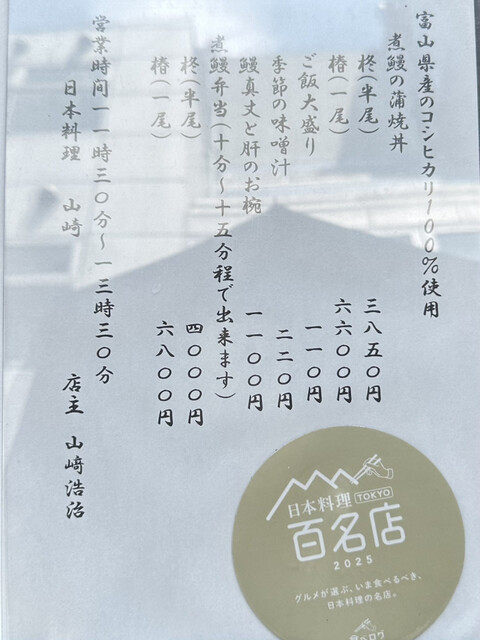 富山県産のコシヒカリ100%使用
煮鰻の蒲焼丼
柊(半尾) 三八五〇円
椿(一尾) 六六〇〇円
ご飯大盛り 一一〇円
季節の味噌汁 二二〇円
鰻真丈と肝のお椀 一一〇〇円
煮鰻弁当(十分～十五分程で出来ます)
柊(半尾) 四〇〇〇円
椿(一尾) 六八〇〇円
営業時間一一時三〇分～一三時三〇分
日本料理 山崎 店主 山﨑浩治
日本料理 TOKYO
百名店
2025
グルメが選ぶ、いま食べるべき、
日本料理の名店。
食べログ